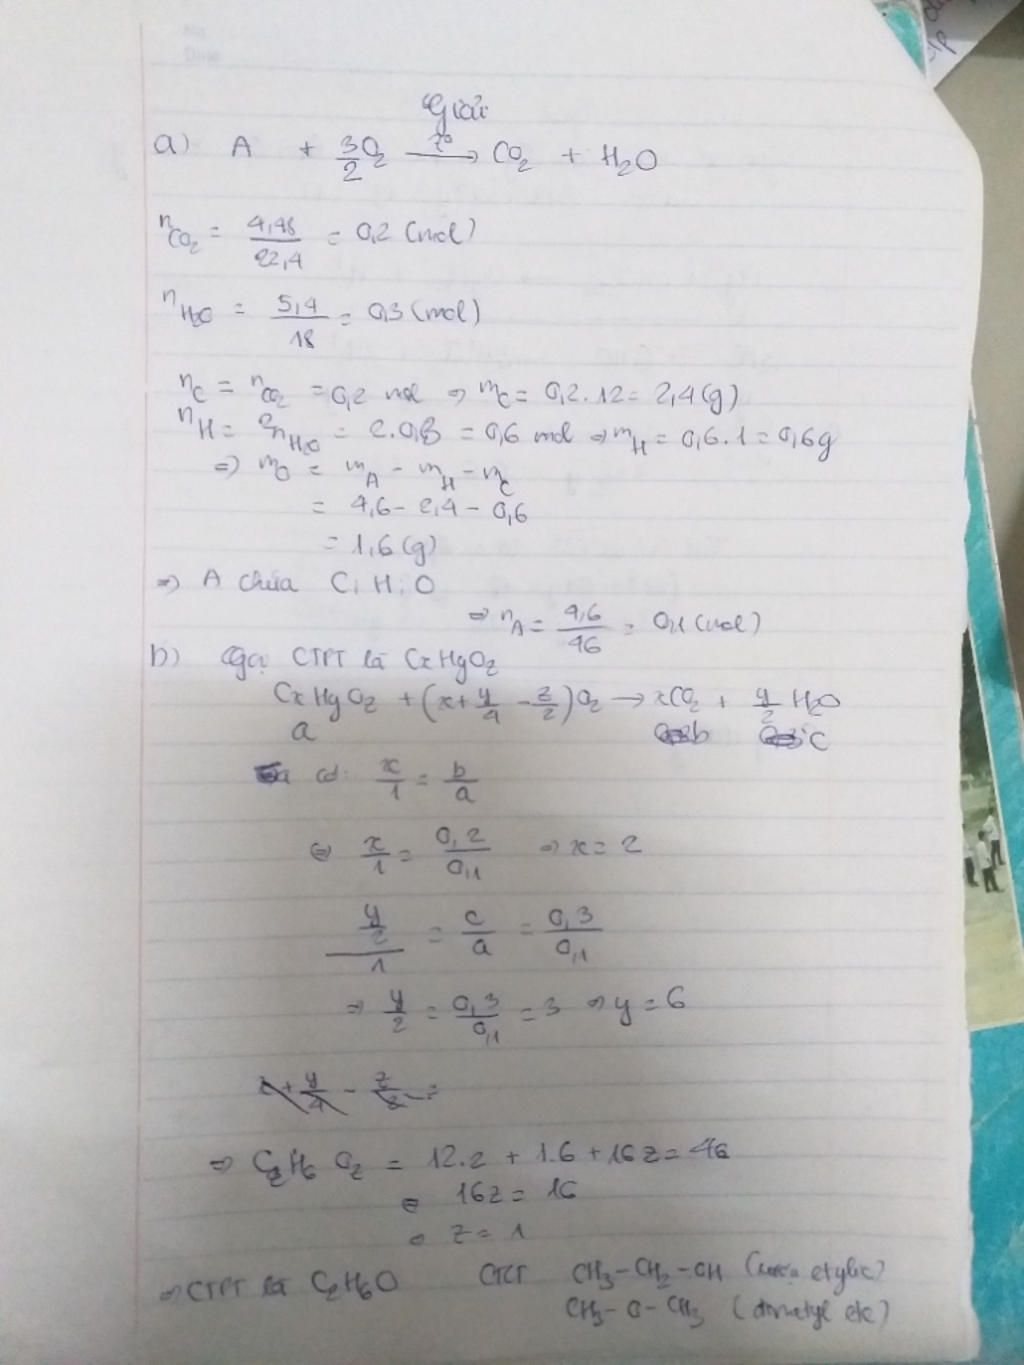 Giải
a) A + 3/2 O2 —t°→ CO2 + H2O
nCO2 = 4,48/22,4 = 0,2 (mol)
nH2O = 5,4/18 = 0,3 (mol)
nC = nCO2 = 0,2 mol => mC = 0,2.12 = 2,4(g)
nH = 2nH2O = 2.0,3 = 0,6 mol => mH = 0,6.1 = 0,6g
=> mO = mA - mH - mC
= 4,6 - 2,4 - 0,6
= 1,6(g)
=> A chứa C, H, O
=> nA = 4,6/46 = 0,1 (mol)
b) Gọi CTPT là CxHyOz
CxHyOz + (x + y/4 - z/2)O2 → xCO2 + y/2 H2O
a b c
Ta có: x/1 = b/a
<=> x/1 = 0,2/0,1 => x = 2
y/2/1 = c/a = 0,3/0,1
=> y/2 = 0,3/0,1 = 3 => y = 6
x + y/4 - z/2 =
=> C2H6Oz = 12.2 + 1.6 + 16z = 46
= 16z = 16
= z = 1
=> CTPT là C2H6O CTCT CH3-CH2-OH (rượu etylic)
CH3-O-CH3 (dimetyl ete)